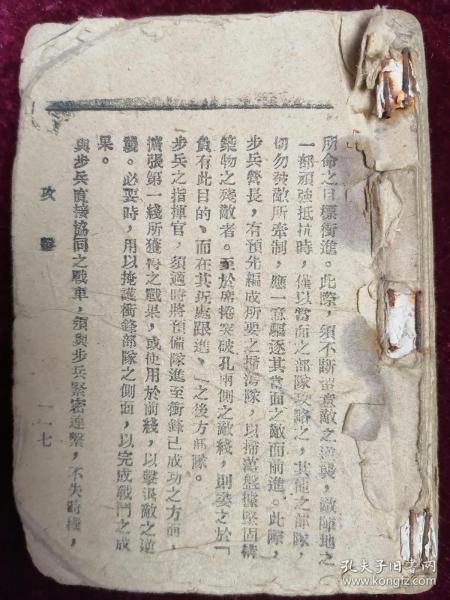 所命之目標衝進。此際，須不斷留意敵之逆襲，敵陣地之
一部頑強抵抗時，僅以當面之部隊攻略之，其他之部隊，
切勿為敵所牽制，應一意驅逐其當面之敵而前進。此際，
步兵營長，有預先編成所要之掃蕩隊，以掃蕩盤據堅固構
築物之殘敵者。至於席捲突破孔兩側之敵綫，則委之於「
負有此目的、而在其近處跟進」之後方部隊。
步兵之指揮官，須適時將預備隊進至衝鋒已成功之方面，
擴張第一綫所獲得之戰果，或使用於前綫，以擊退敵之逆
襲。必要時，用以掩護衝鋒部隊之側面，以完成戰鬥之成
果。
與步兵直接協同之戰車，須與步兵緊密連繫，不失時機，
攻擊
一一七
孔夫子旧书网
www.kongfz.com